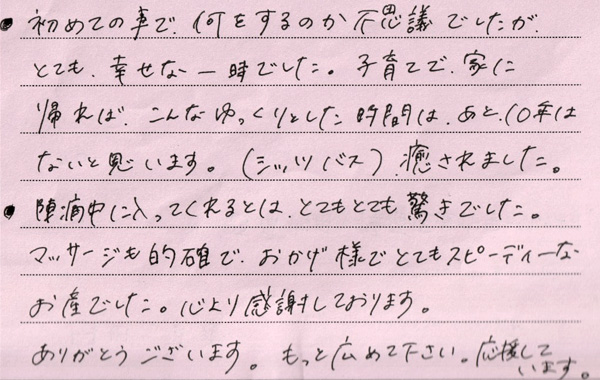 ● 初めての事で、何をするのか不思議でしたが、
とても、幸せな一時でした。子育てで、家に
帰れば、こんなゆっくりとした時間は、あと、10年は
ないと思います。(シッツバス)癒されました。
● 陣痛中に入ってくれるとは、とてもとても驚きでした。
マッサージも的確で、おかげ様でとてもスピーディーな
お産でした。心より感謝しております。
ありがとうございます。もっと広めて下さい。応援して
います。